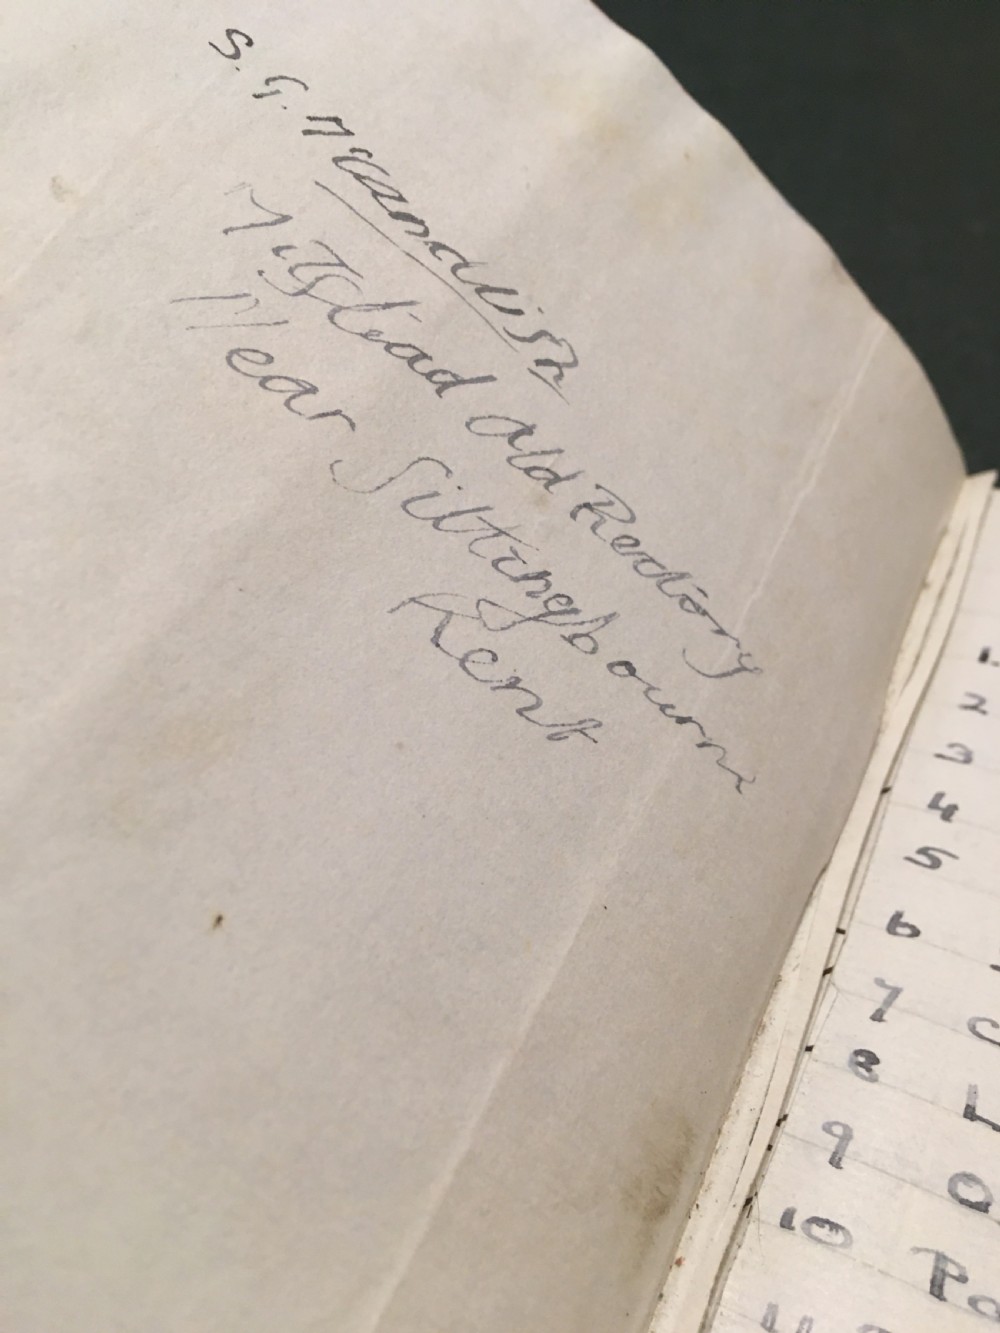 S. G. McCandlish
Milstead Old Rectory
Near Sittingbourne
Kent
1.
2
3
4
5
6
7
8
9
10
11